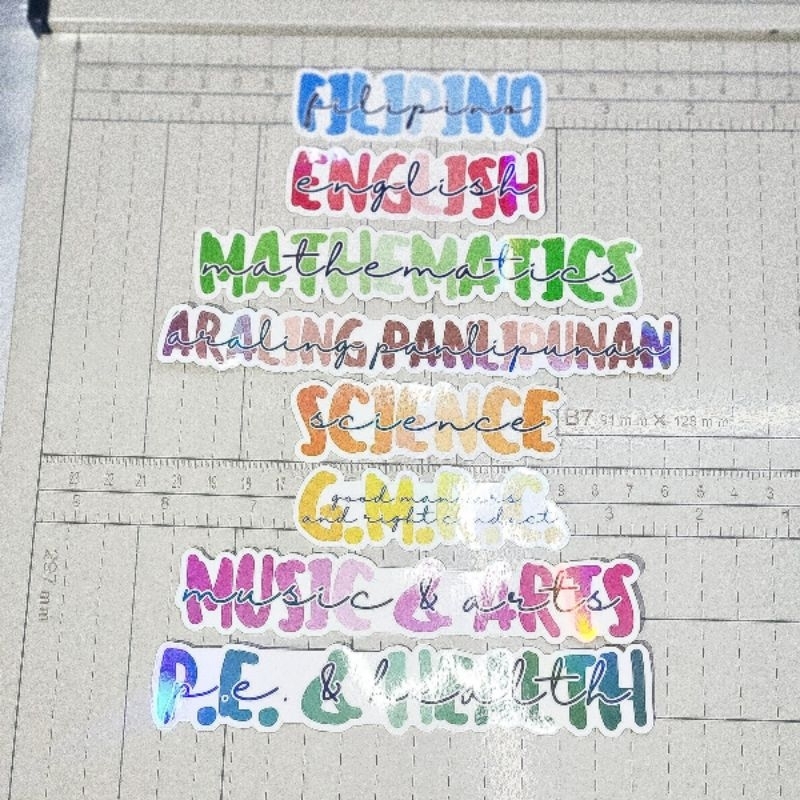 FILIPINO
filipino
ENGLISH
english
MATHEMATICS
mathematics
ARALING PANLIPUNAN
araling panlipunan
SCIENCE
science
B7 91 mm × 128 mm
G.M.R.C.
good manners
and right conduct
MUSIC & ARTS
music & arts
P.E. & HEALTH
p.e. & health
297 mm